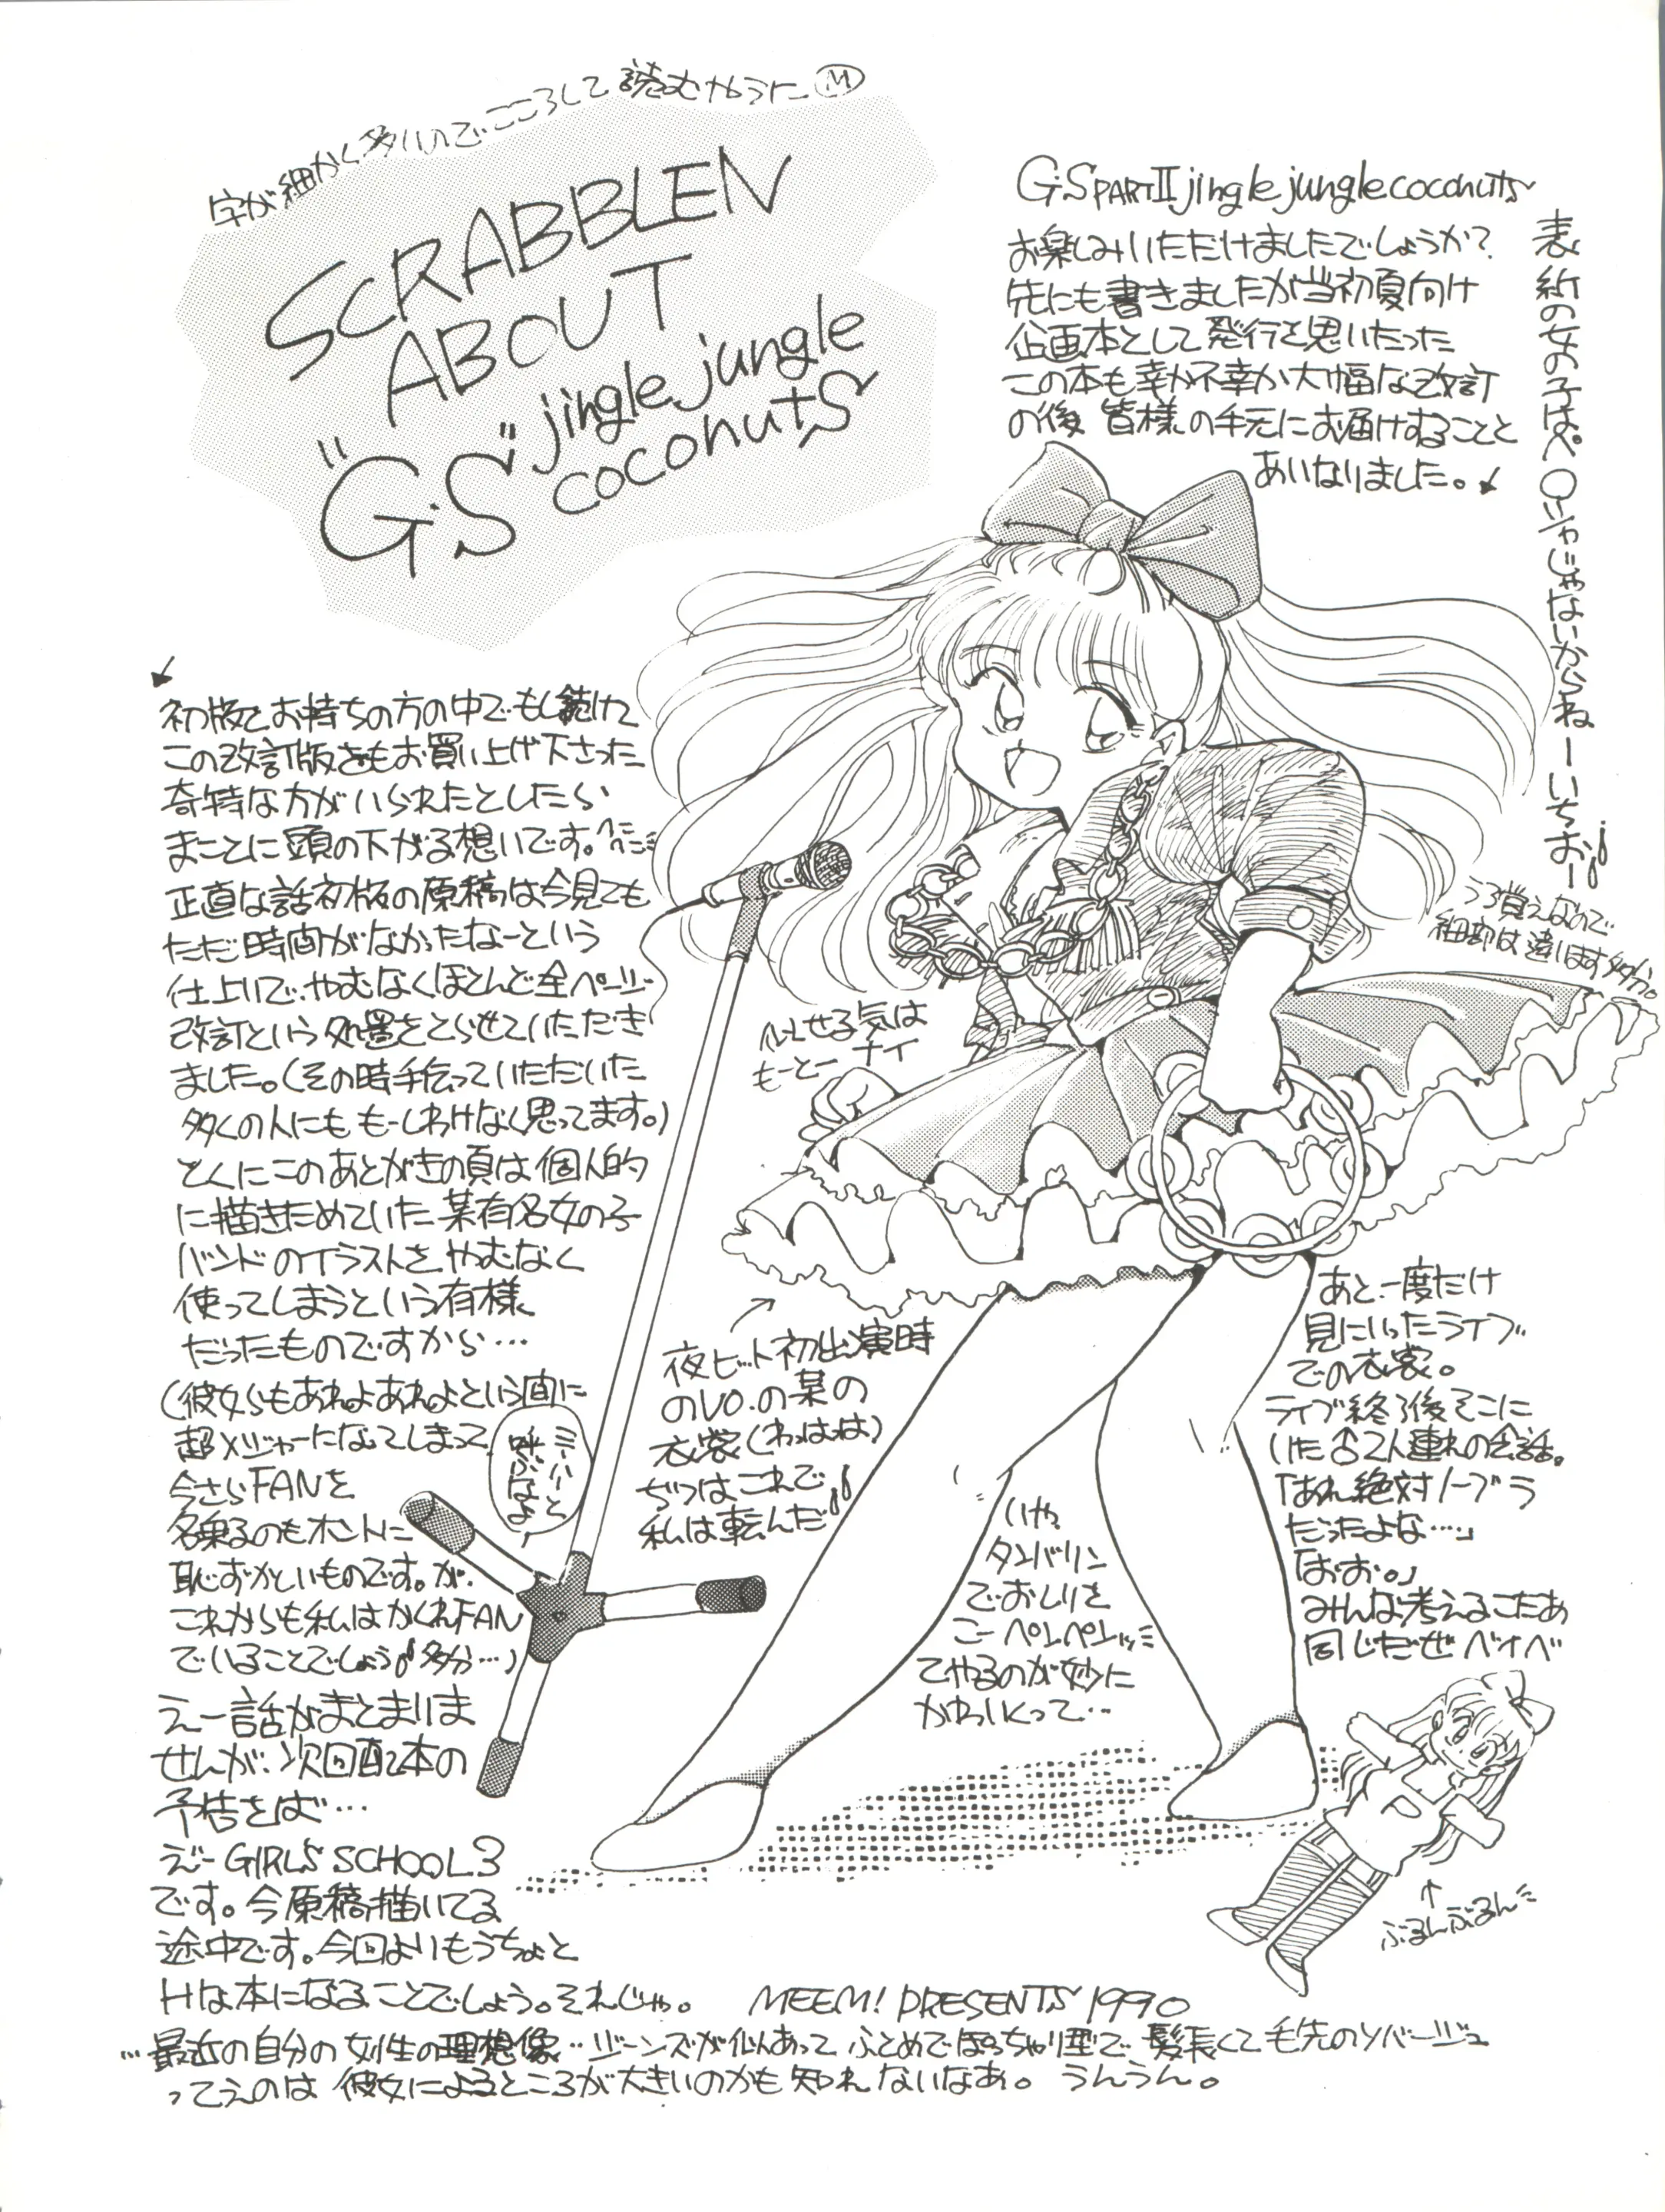 字が細かく多いのでこころして読むやうに Ⓜ
SCRABBLEN
ABOUT
"G.S" jingle jungle
coconuts
G.S PART II jingle jungle coconuts
お楽しみいただけましたでしょうか?
先にも書きましたが当初夏向け
企画本として発行を思いたった
この本も幸か不幸か大幅な改訂
の後 皆様の手元にお届けすることと
あいなりました。
表紙の女の子はペ○いゃじゃないからねーいちおー
初版をお持ちの方の中でもし続けて
この改訂版をもお買い上げ下さった
奇特な方がいられたとしたら
まことに頭の下がる想いです。
正直な話初版の原稿は今見ても
ただ時間がなかったなーという
仕上りで、やむなくほとんど全ページ
改訂という処置をとらせていただき
ました。(その時手伝っていただいた
多くの人にももーしわけなく思ってます。)
とくにこのあとがきの頁は個人的
に描きためていた某有名女の子
バンドのイラストをやむなく
使ってしまうという有様
だったものですから…
(彼女らもあれよあれよという間に
超メジャーになってしまって
今さらFANを
名乗るのもホントに
恥ずかしいものです。が、
これからも私はかくれFAN
でいることでしょう 多分…)
ミーハーと
呼ぶなよ
えー話がまとまりま
せんが、次回配本の
予告をば…
えーGIRL'S SCHOOL3
です。今原稿描いてる
途中です。今回よりもうちょと
Hな本になることでしょう。それじゃ。
MEEM! PRESENTS 1990
うろ覚えなので
細部は違います多分。
似せる気は
もーとーナイ
夜ヒット初出演時
のVO.の某の
衣裳(わはは)
ぢつはこれで
私は転んだ
いや、
タンバリン
でおしりを
こーペンペンッ
てやるのが妙に
かわいくって…
あと、一度だけ
見にいったライブ
での衣裳。
ライブ終了後そこに
いた♂2人連れの会話。
「あれ絶対ノーブラ
だったよな…」
「おお。」
みんな考えるこたあ
同じだぜベイベ
ぶるんぶるん
…最近の自分の女性の理想像…ジーンズが似あって ふとめでぽっちゃり型で、髪長くて毛先のソバージュ
ってえのは 彼女によるところが大きいのかも知れないなあ。うんうん。